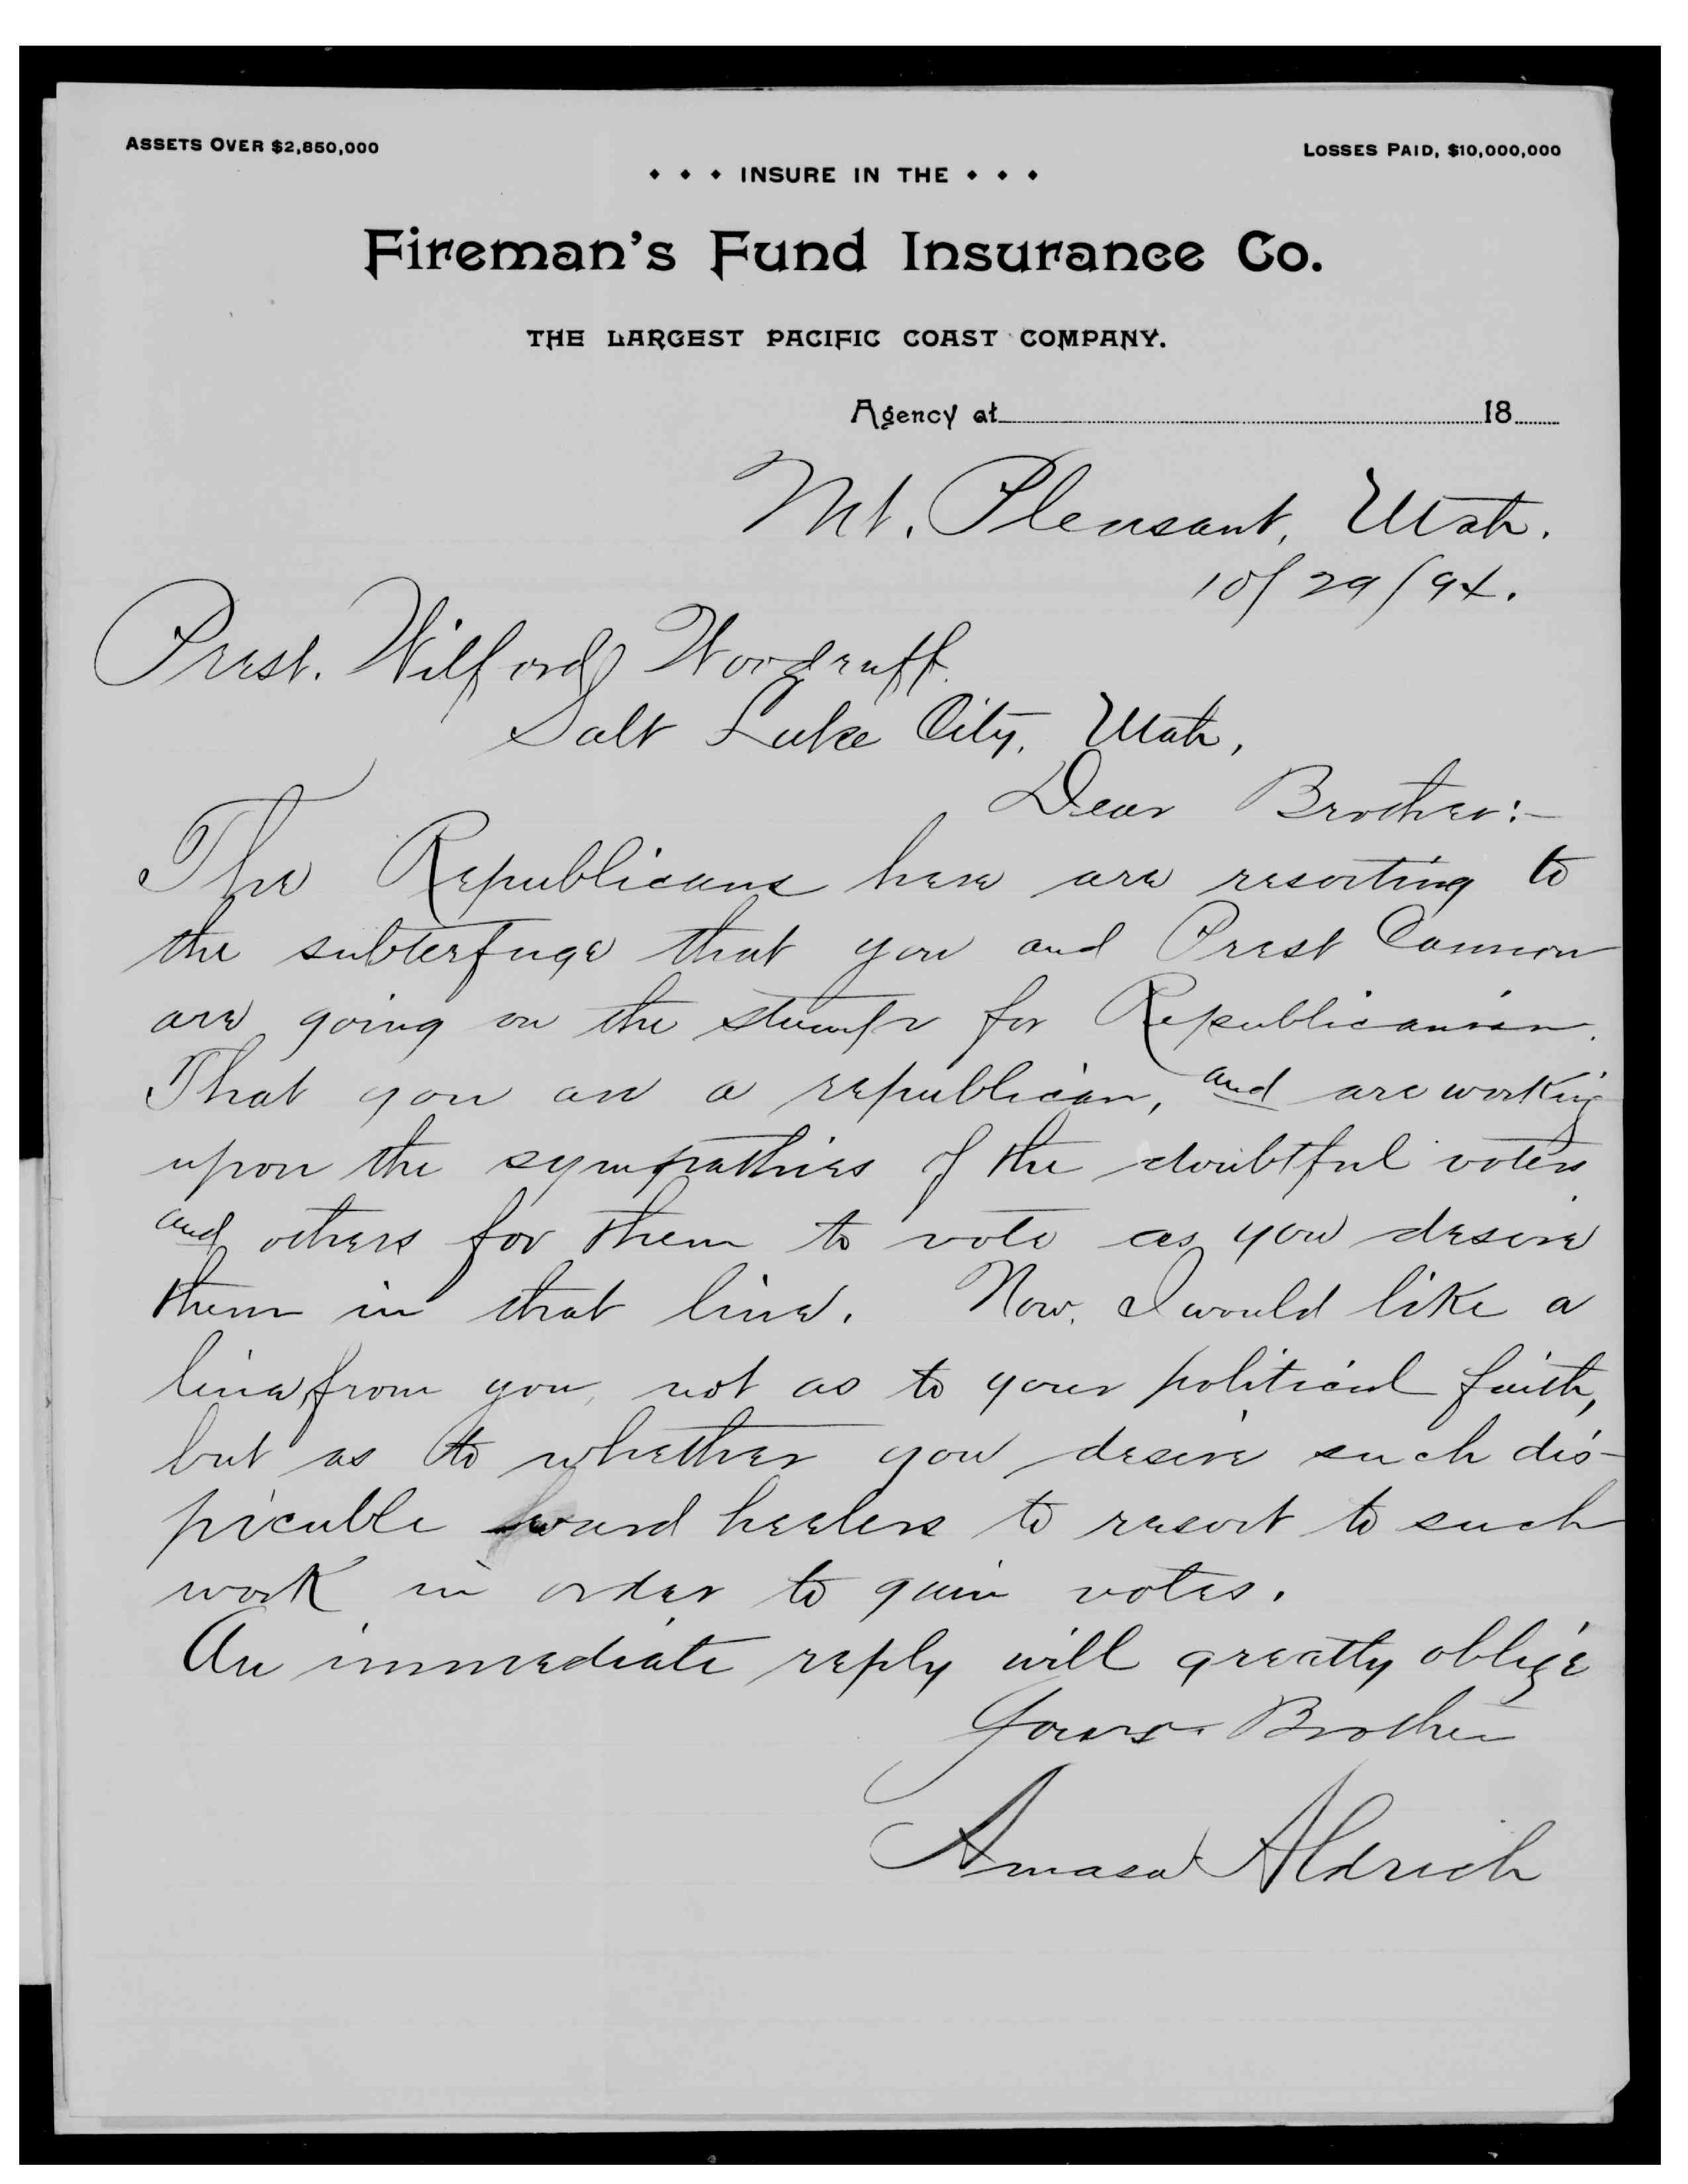 ASSETS OVER $2,850,000
LOSSES PAID, $10,000,000
INSURE IN THE
Fireman's Fund Insurance Co.
THE LARGEST PACIFIC COAST COMPANY.
Agency at 18
Mt. Pleasant, Utah.
10/29/94.
Prest. Wilford Woodruff.
Salt Lake City, Utah,
Dear Brother:-
The Republicans here are resorting to
the subterfuge that you and Prest Cannon
are going on the stump for Republicanism.
That you are a republican, and are working
upon the sympathies of the doubtful voters
and others for them to vote as you desire
them in that line. Now, I would like a
line from you, not as to your political faith,
but as to whether you desire such dis-
picable ward heelers to resort to such
work in order to gain votes.
An immediate reply will greatly oblige
Yours. Brother
Amasa Aldrich